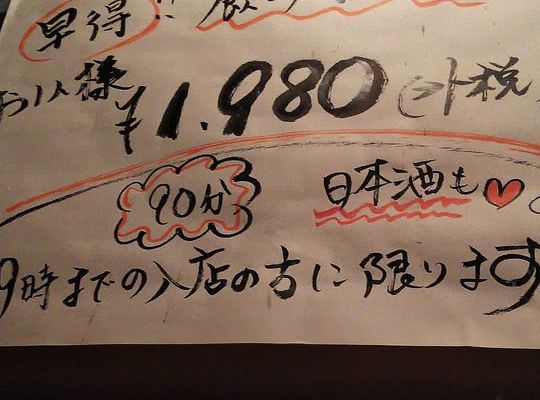 早得!!
お1人様 ¥1.980 (外税
90分 日本酒も♥
9時までの入店の方に限ります